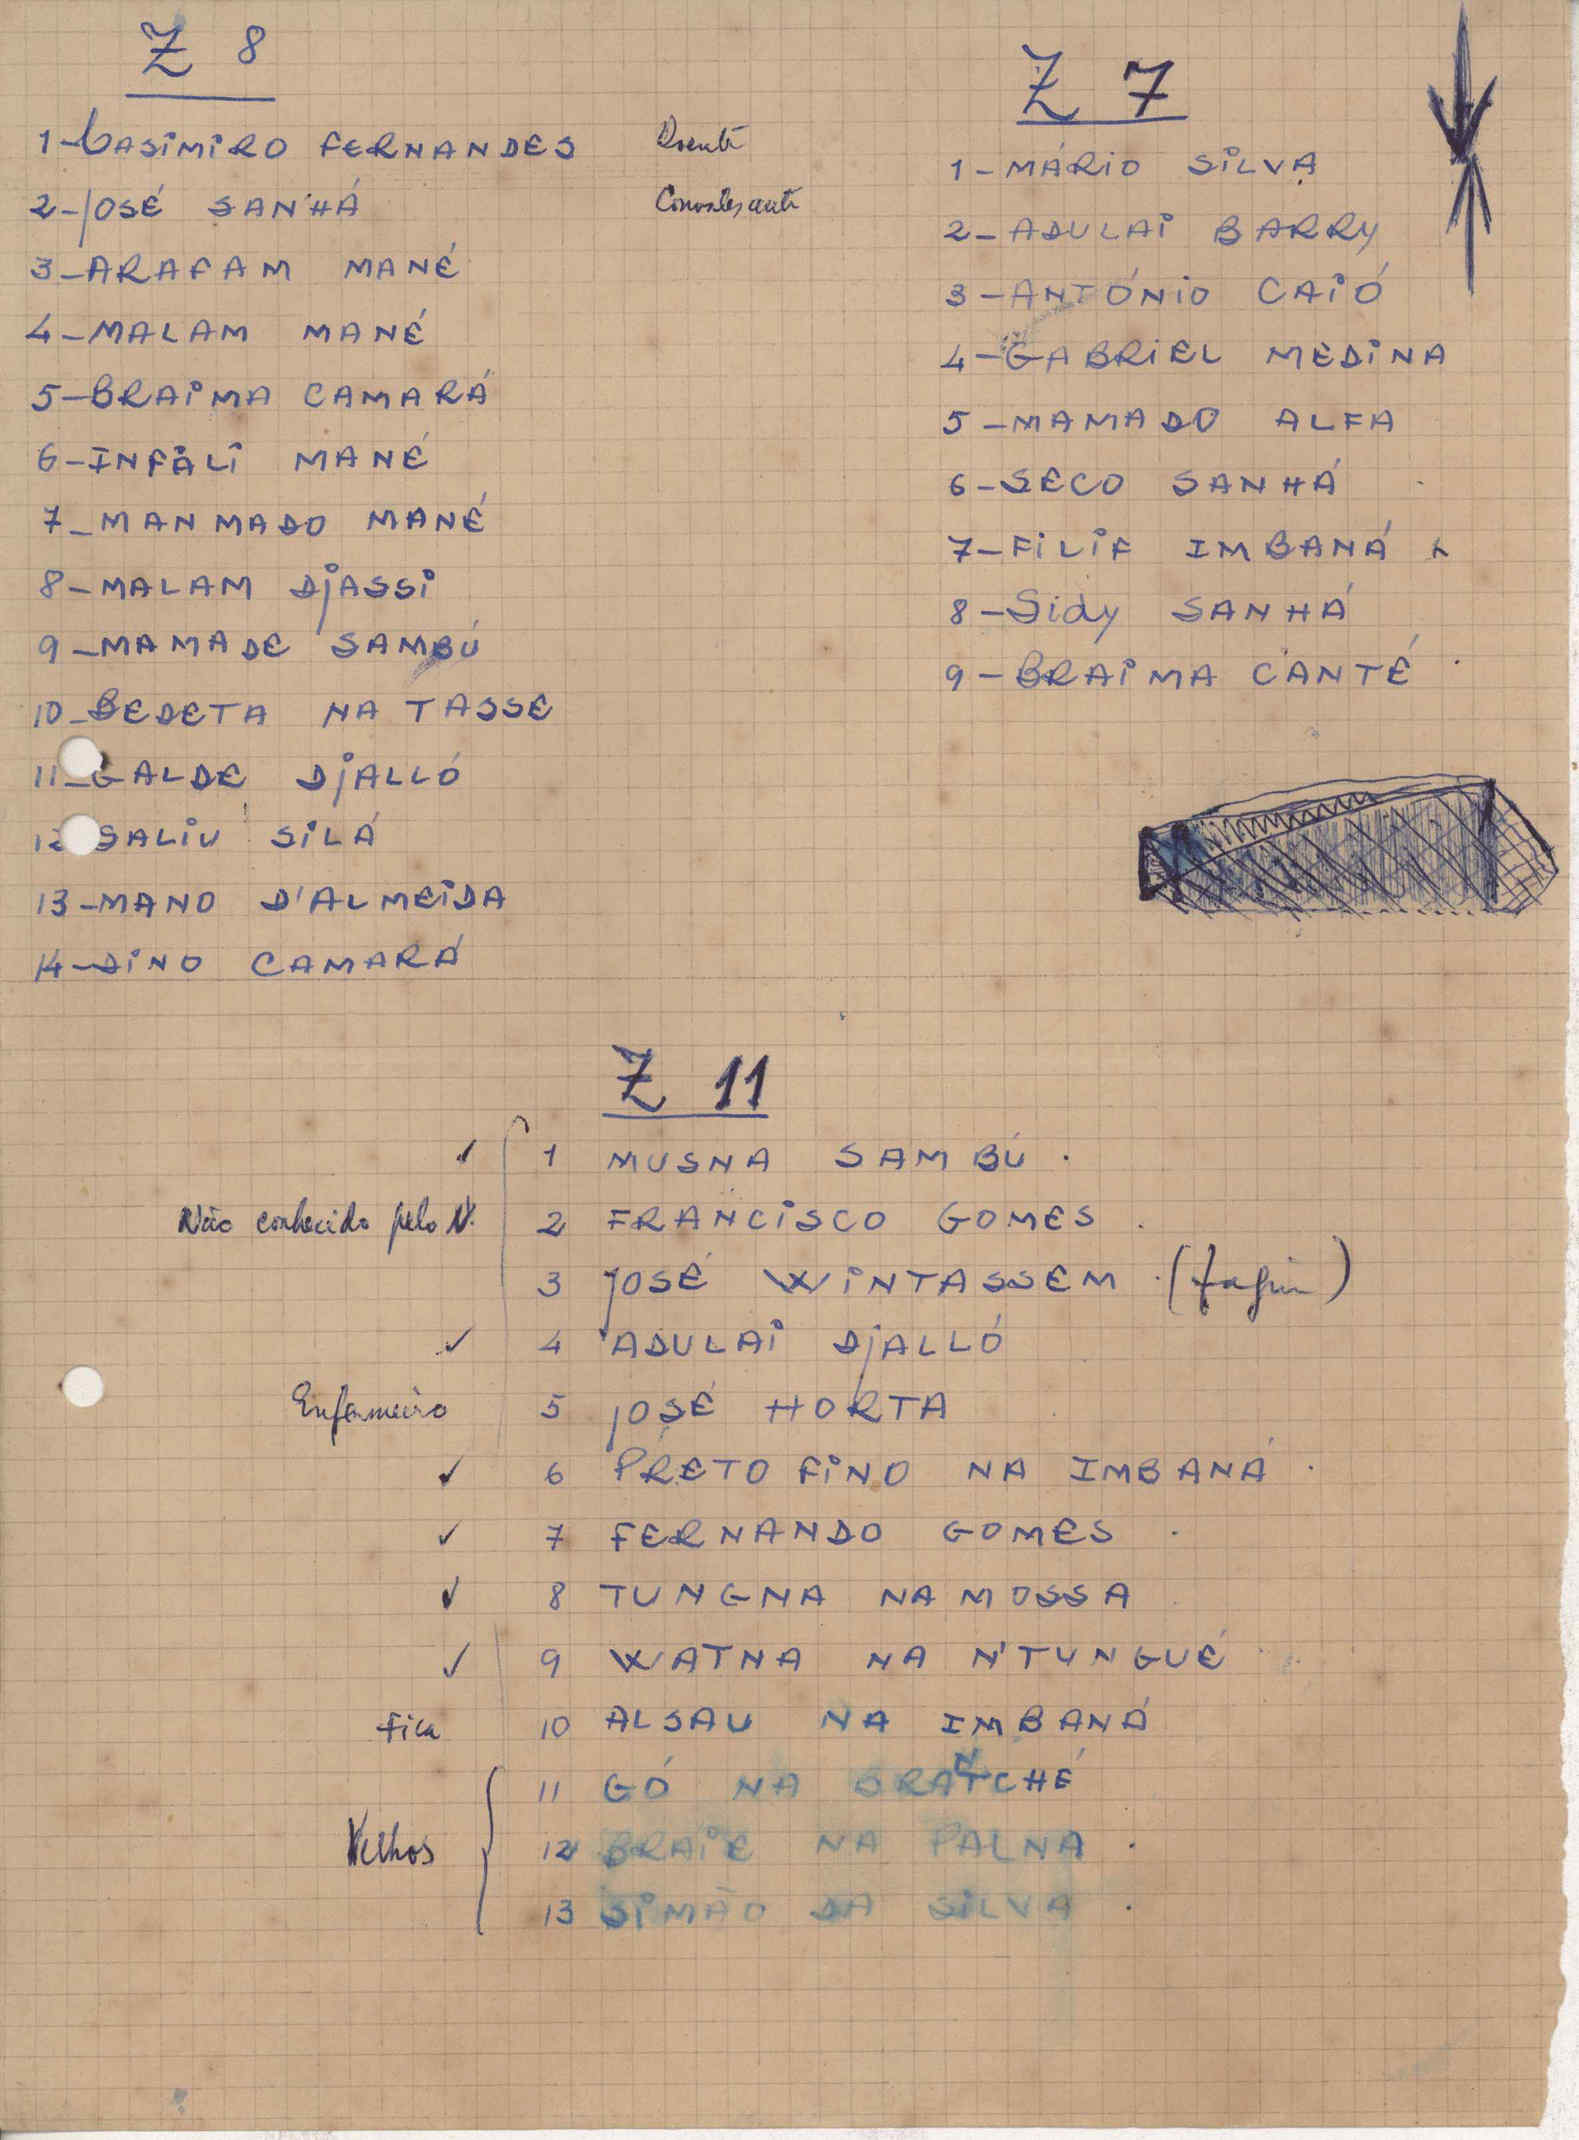 Z 8
1-CASIMIRO FERNANDES Doente
2-JOSÉ SANHÁ Convalescente
3-ARAFAM MANÉ
4-MALAM MANÉ
5-BRAIMA CAMARÁ
6-INFALI MANÉ
7-MANMADO MANÉ
8-MALAM DJASSI
9-MAMADE SAMBÚ
10-BEDETA NA TASSE
11-GALDE DJALLÓ
12 SALIU SILÁ
13-MANO D'ALMEIDA
14-DINO CAMARÁ
Z 7
1-MÁRIO SILVA
2-ADULAI BARRY
3-ANTÓNIO CAIÓ
4-GABRIEL MEDINA
5-MAMADO ALFA
6-SECO SANHÁ
7-FILIF IMBANÁ
8-Sidy SANHÁ
9-BRAIMA CANTÉ
Z 11
✓ 1 MUSNA SAMBÚ.
Não conhecido pelo N. 2 FRANCISCO GOMES.
3 JOSÉ WINTASSEM.
✓ 4 ADULAI DJALLÓ
Enfermeiro 5 JOSÉ HORTA
✓ 6 PRETO FINO NA IMBANÁ.
✓ 7 FERNANDO GOMES.
✓ 8 TUNGNA NA MOSSA
✓ 9 WATNA NA N'TUNGUÉ
Fica 10 ALSAU NA IMBANÁ
11 GÓ NA
Velhos 12 BRAIE NA PALNA.
13 SIMÃO DA SILVA.